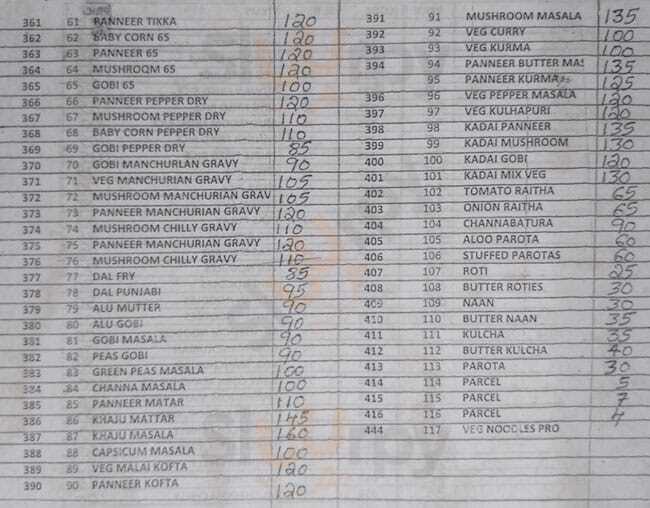 361 61 PANNEER TIKKA 120
362 62 BABY CORN 65 120
363 63 PANNEER 65 120
364 64 MUSHROOM 65 120
365 65 GOBI 65 100
366 66 PANNEER PEPPER DRY 120
367 67 MUSHROOM PEPPER DRY 110
368 68 BABY CORN PEPPER DRY 110
369 69 GOBI PEPPER DRY 85
370 70 GOBI MANCHURLAN GRAVY 90
371 71 VEG MANCHURIAN GRAVY 105
372 72 MUSHROOM MANCHURIAN GRAV 105
373 73 PANNEER MANCHURIAN GRAVY 120
374 74 MUSHROOM CHILLY GRAVY 110
375 75 PANNEER MANCHURIAN GRAVY 120
376 76 MUSHROOM CHILLY GRAVY 110
377 77 DAL FRY 85
378 78 DAL PUNJABI 95
379 79 ALU MUTTER 90
380 80 ALU GOBI 90
381 81 GOBI MASALA 90
382 82 PEAS GOBI 90
383 83 GREEN PEAS MASALA 100
384 84 CHANNA MASALA 100
385 85 PANNEER MATAR 110
386 86 KHAJU MATTAR 145
387 87 KHAJU MASALA 160
388 88 CAPSICUM MASALA 100
389 89 VEG MALAI KOFTA 120
390 90 PANNEER KOFTA 120
391 91 MUSHROOM MASALA 135
392 92 VEG CURRY 100
393 93 VEG KURMA 100
394 94 PANNEER BUTTER MAS 135
95 PANNEER KURMA 125
396 96 VEG PEPPER MASALA 120
397 97 VEG KULHAPURI 120
398 98 KADAI PANNEER 135
399 99 KADAI MUSHROOM 130
400 100 KADAI GOBI 120
401 101 KADAI MIX VEG 130
402 102 TOMATO RAITHA 65
403 103 ONION RAITHA 65
404 104 CHANNABATURA 90
405 105 ALOO PAROTA 60
406 106 STUFFED PAROTAS 60
407 107 ROTI 25
408 108 BUTTER ROTIES 30
409 109 NAAN 30
410 110 BUTTER NAAN 35
411 111 KULCHA 35
412 112 BUTTER KULCHA 40
413 113 PAROTA 30
414 114 PARCEL 5
415 115 PARCEL 7
416 116 PARCEL 4
444 117 VEG NOODLES PRO